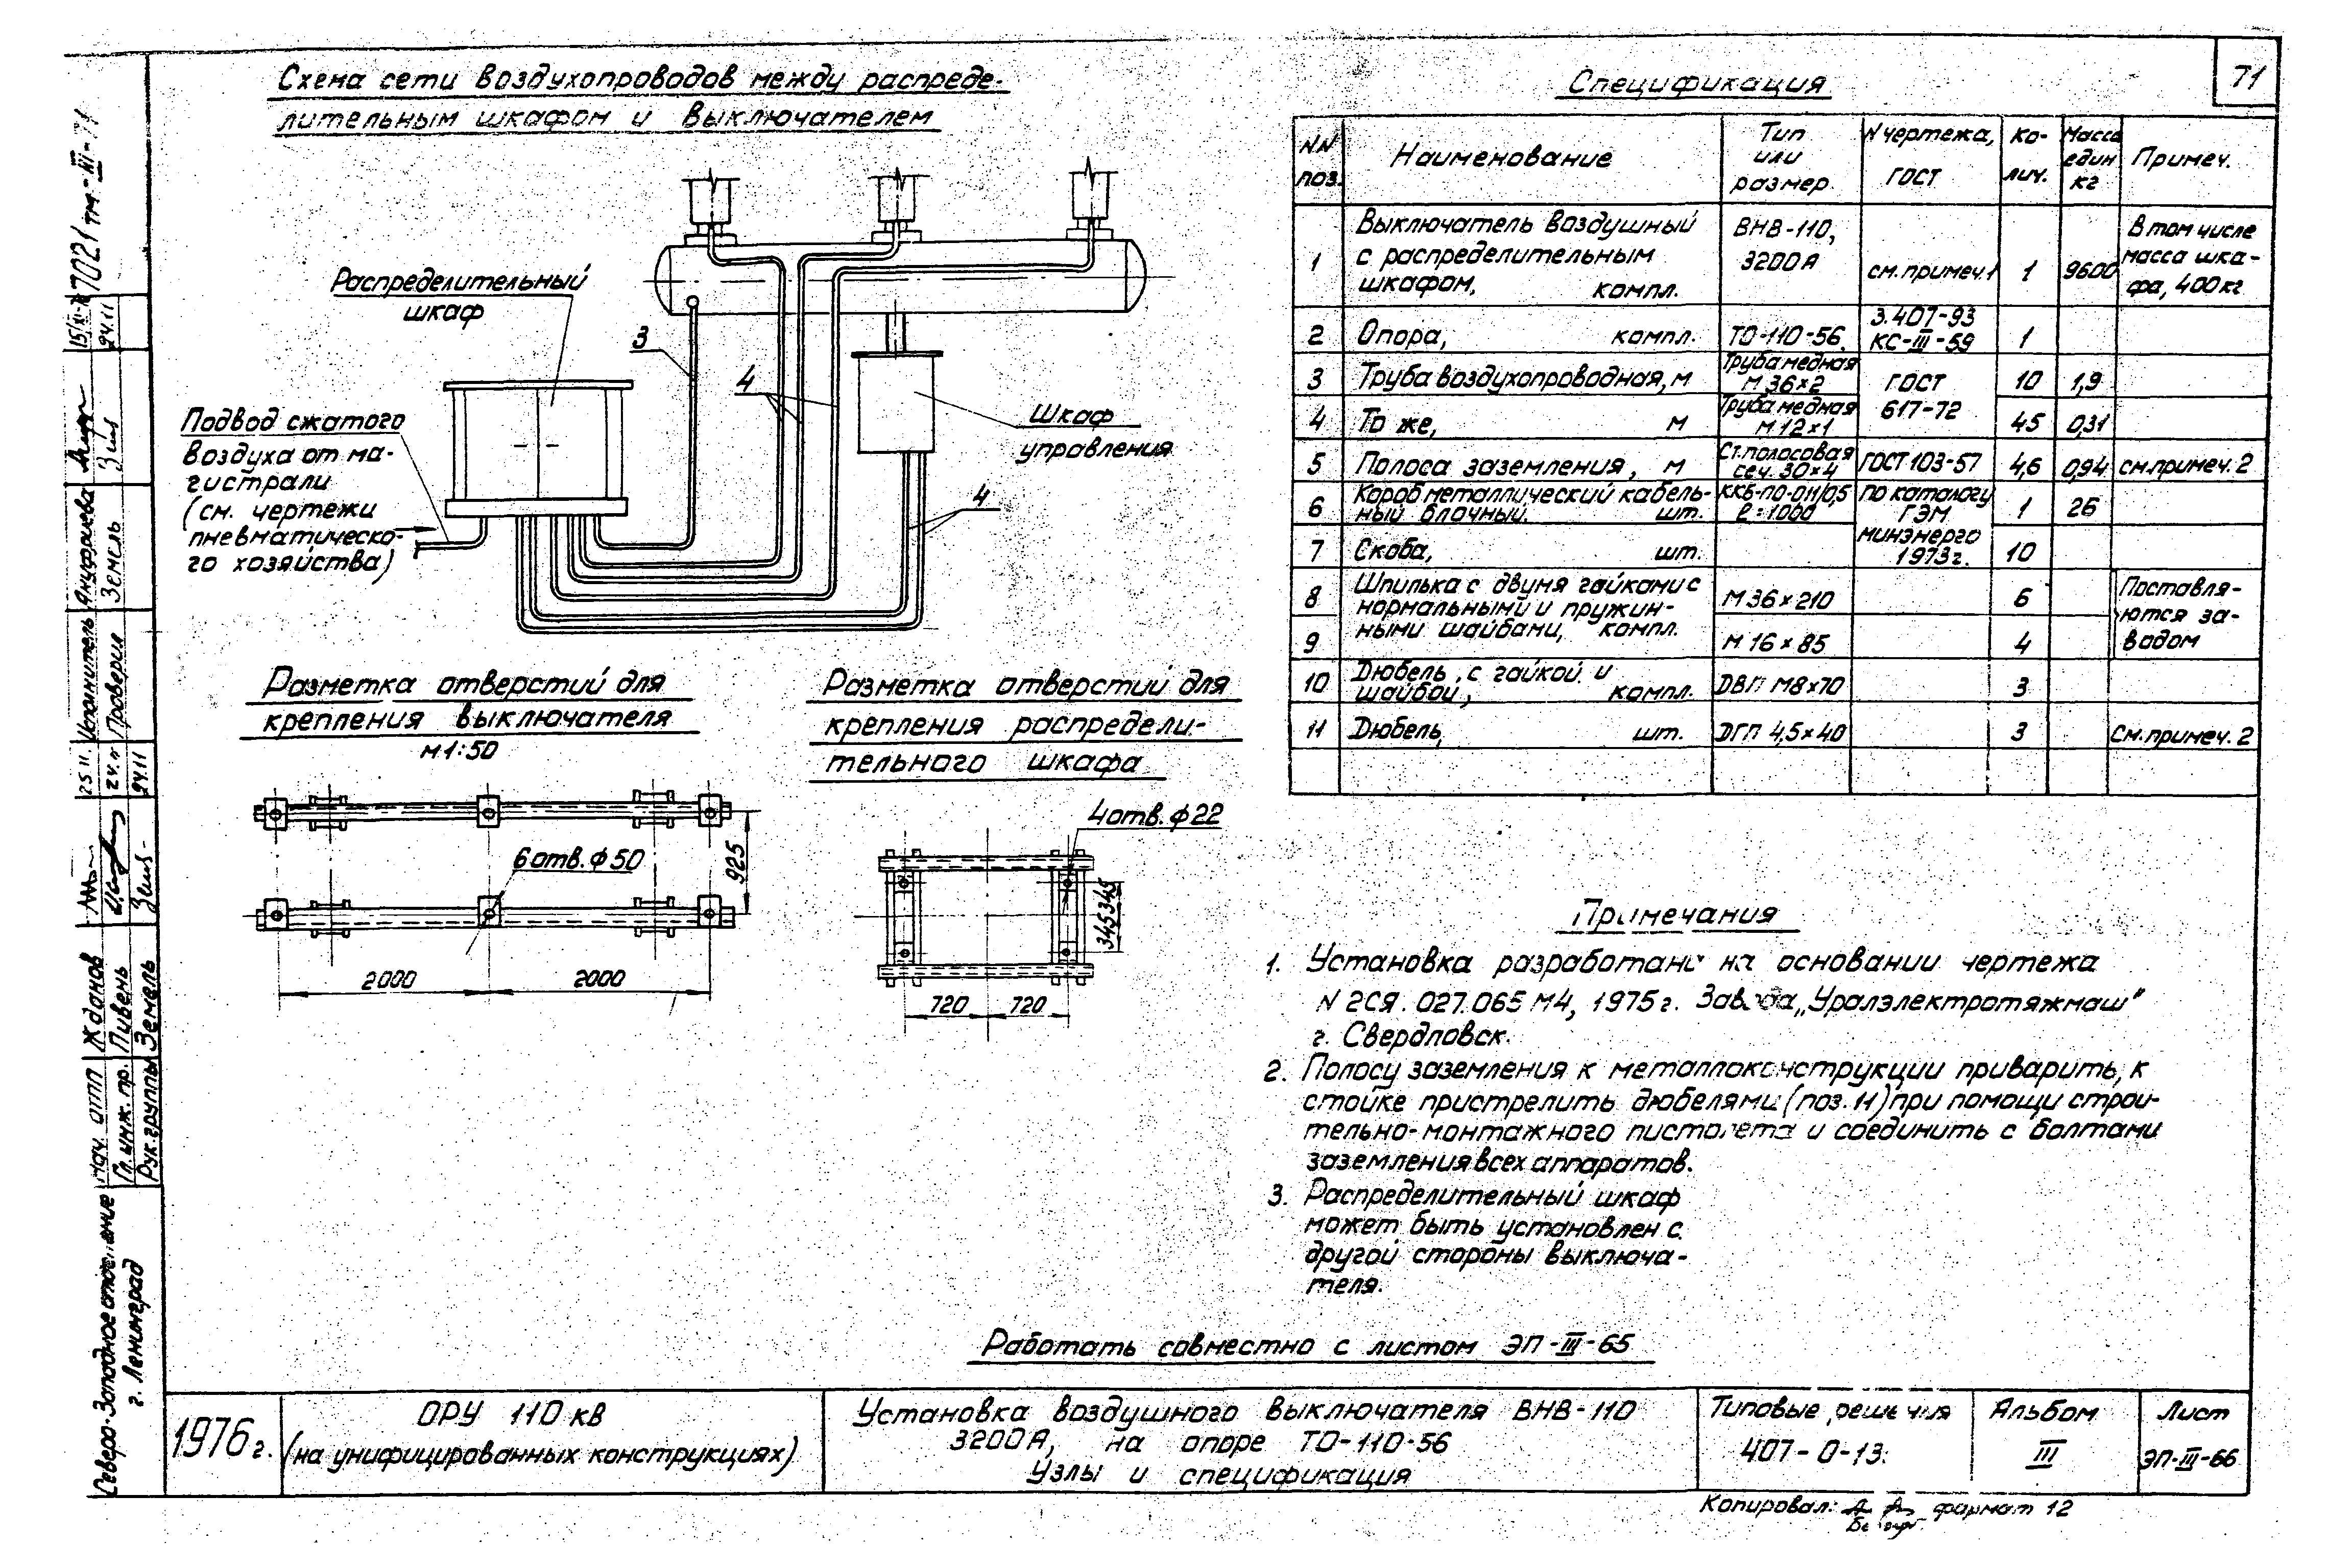 71
Схема сети воздухопроводов между распреде-
лительным шкафом и выключателем
Распределительный
шкаф
3
4
Подвод сжатого
воздуха от ма-
гистрали
(см. чертежи
пневматическо-
го хозяйства)
Шкаф
управления
4
Разметка отверстий для
крепления выключателя
М1:50
6 отв. ф50
925
2000 2000
Разметка отверстий для
крепления распредели-
тельного шкафа
4 отв. ф22
345 345
720 720
Спецификация
NN поз. | Наименование | Тип или размер | N чертежа, ГОСТ | Ко-лич. | Масса един кг | Примеч.
1 | Выключатель воздушный с распределительным шкафом, компл. | ВНВ-110, 3200А | см. примеч. 1 | 1 | 9600 | В том числе масса шка-фа, 400 кг
2 | Опора, компл. | ТО-110-56. | 3.407-93 КС-III-59 | 1
3 | Труба воздухопроводная, м | Труба медная М 36×2 | ГОСТ 617-72 | 10 | 1,9
4 | То же, м | Труба медная М 12×1 | 45 | 0,31
5 | Полоса заземления, м | Ст. полосовая сеч. 30×4 | ГОСТ 103-57 | 4,6 | 0,94 | см. примеч. 2
6 | Короб металлический кабель-ный блочный. шт. | ККБ-ПО-011/0,5 l=1000 | по каталогу ГЭМ минэнерго 1973г. | 1 | 26
7 | Скоба, шт. | 10
8 | Шпилька с двумя гайками с нормальными и пружин-ными шайбами, компл. | М 36×210 | 6 | Поставля-ются за-водом
9 | М 16×85 | 4
10 | Дюбель, с гайкой и шайбой, компл. | ДВП М8×70 | 3
11 | Дюбель, шт. | ДГП 4,5×40 | 3 | См. примеч. 2
Примечания
1. Установка разработана на основании чертежа
N 2СЯ.027.065 М4, 1975г. Завода „Уралэлектротяжмаш"
г. Свердловск.
2. Полосу заземления к металлоконструкции приварить, к
стойке пристрелить дюбелями (поз. 11) при помощи строи-
тельно-монтажного пистолета и соединить с болтами
заземления всех аппаратов.
3. Распределительный шкаф
может быть установлен с
другой стороны выключа-
теля.
Работать совместно с листом ЭП-III-65
1976г.
ОРУ 110 кВ
(на унифицированных конструкциях)
Установка воздушного выключателя ВНВ-110
3200А, на опоре ТО-110-56
Узлы и спецификация
Типовые решения
407-0-13.
Альбом
III
Лист
ЭП-III-66
Копировал:
формат 12
7021тм-III-71
Исполнитель Ануфриева
Проверил Земель
Нач. ОТП Жданов
Гл. инж. пр. Пивень
Рук. группы Земель
25.11.
24.11
24.11
Северо-Западное отделение
г. Ленинград